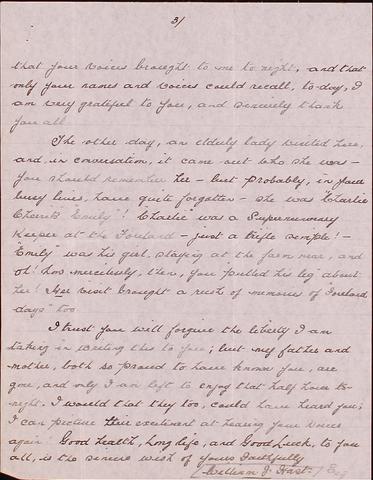 3/
that your voices brought to me to night, and that
only your names and voices could recall, to-day, I
am very grateful to you, and sincerely thank
you all.
The other day, an elderly lady visited here,
and, in conversation, it came out who she was —
you should remember her — but probably, in your
busy lives, have quite forgotten — she was "Charlie
Emily"! "Charlie" was a Supernumary
Keeper at the Foreland — just a trifle simple! —
"Emily" was his girl, staying at the farm near, and
oh! how mercilessly, then, you pulled his leg about
her! Her visit brought a rush of memories of "Foreland
days" too.
I trust you will forgive the liberty I am
taking in writing this to you; but my father and
mother, both so proud to have known you, are
gone, and only I am left to enjoy that half hour to-
night. I would that they too, could have heard you;
I can picture their excitement at hearing your voices
again! Good health, long life, and Good Luck, to you
all, is the sincere wish of yours faithfully
William J.